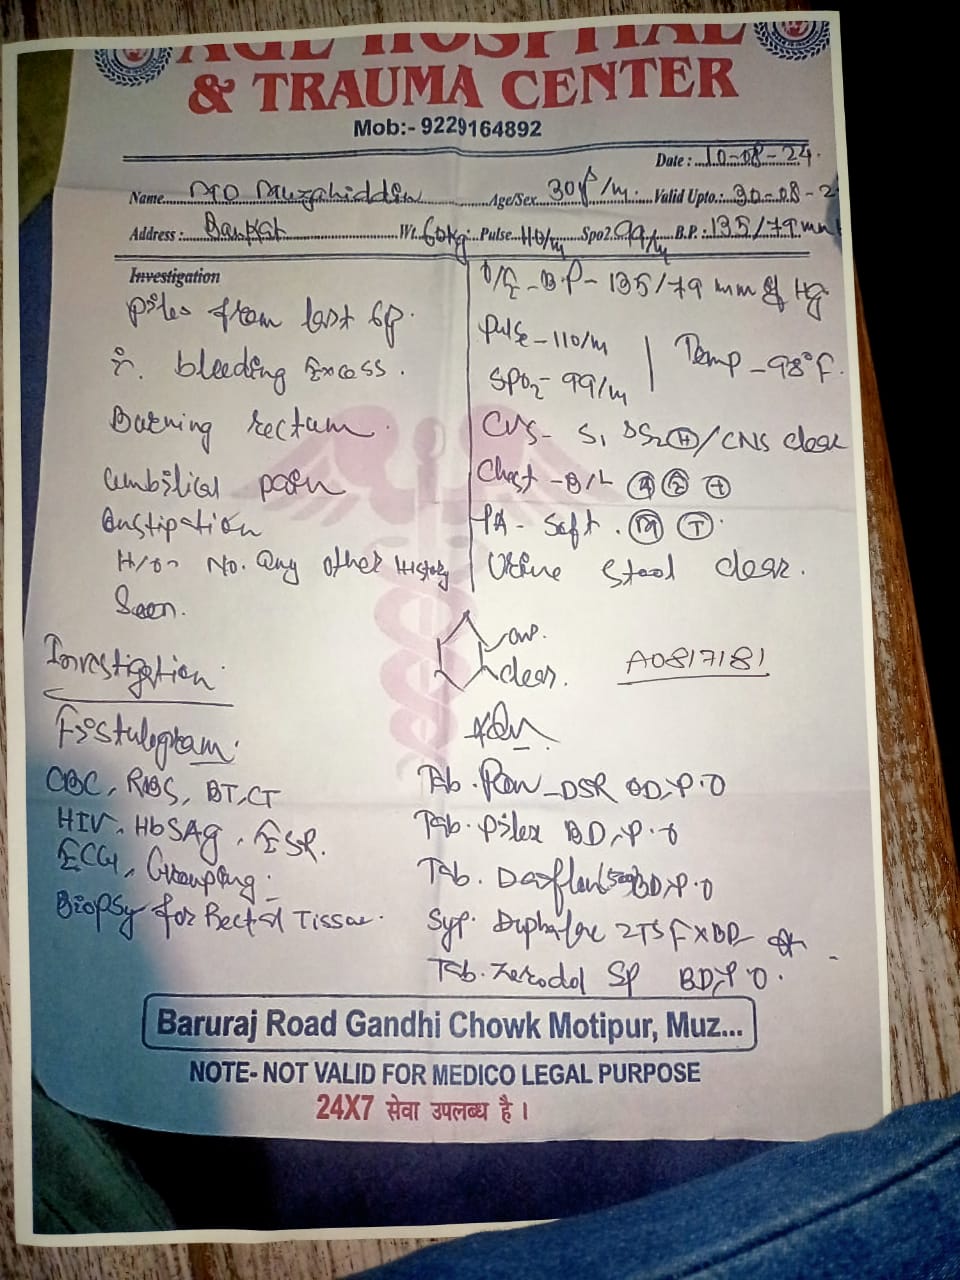 AGE HOSPITAL
& TRAUMA CENTER
Mob:- 9229164892
Date : 10-08-24
Name MD Muzahiddin Age/Sex 30y/m Valid Upto.: 30-08-2
Address : Wt. 60kg Pulse 110/m Spo2. 99/m B.P.: 135/79 mm
Investigation
Piles from last
bleeding Excess.
Burning rectum
umbilical pain
Constipation
H/o- No. any other History
Seen.
O/E - B.P- 135/79 mm of Hg
Pulse-110/m
SPO2- 99/m
Temp - 98°F.
CVS- S1 S2 / CNS clear
Chest - B/L
PA- Soft.
Urine Stool clear.
clear.
A0817181
Investigation
Fistulogram
CBC, RBS, BT, CT
HIV, HbSAg, ESR.
ECG, Grouping
Biopsy for Rectal Tissue.
Adv
Tab. Pan-DSR OD, P.O
Tab. Pilex BD, P.O
Tab. Daflon 500 BD, P.O
Syp. Duphalac 2TSF X BD
Tab. Zerodol SP BD, P.O.
Baruraj Road Gandhi Chowk Motipur, Muz...
NOTE- NOT VALID FOR MEDICO LEGAL PURPOSE
24X7 सेवा उपलब्ध है।